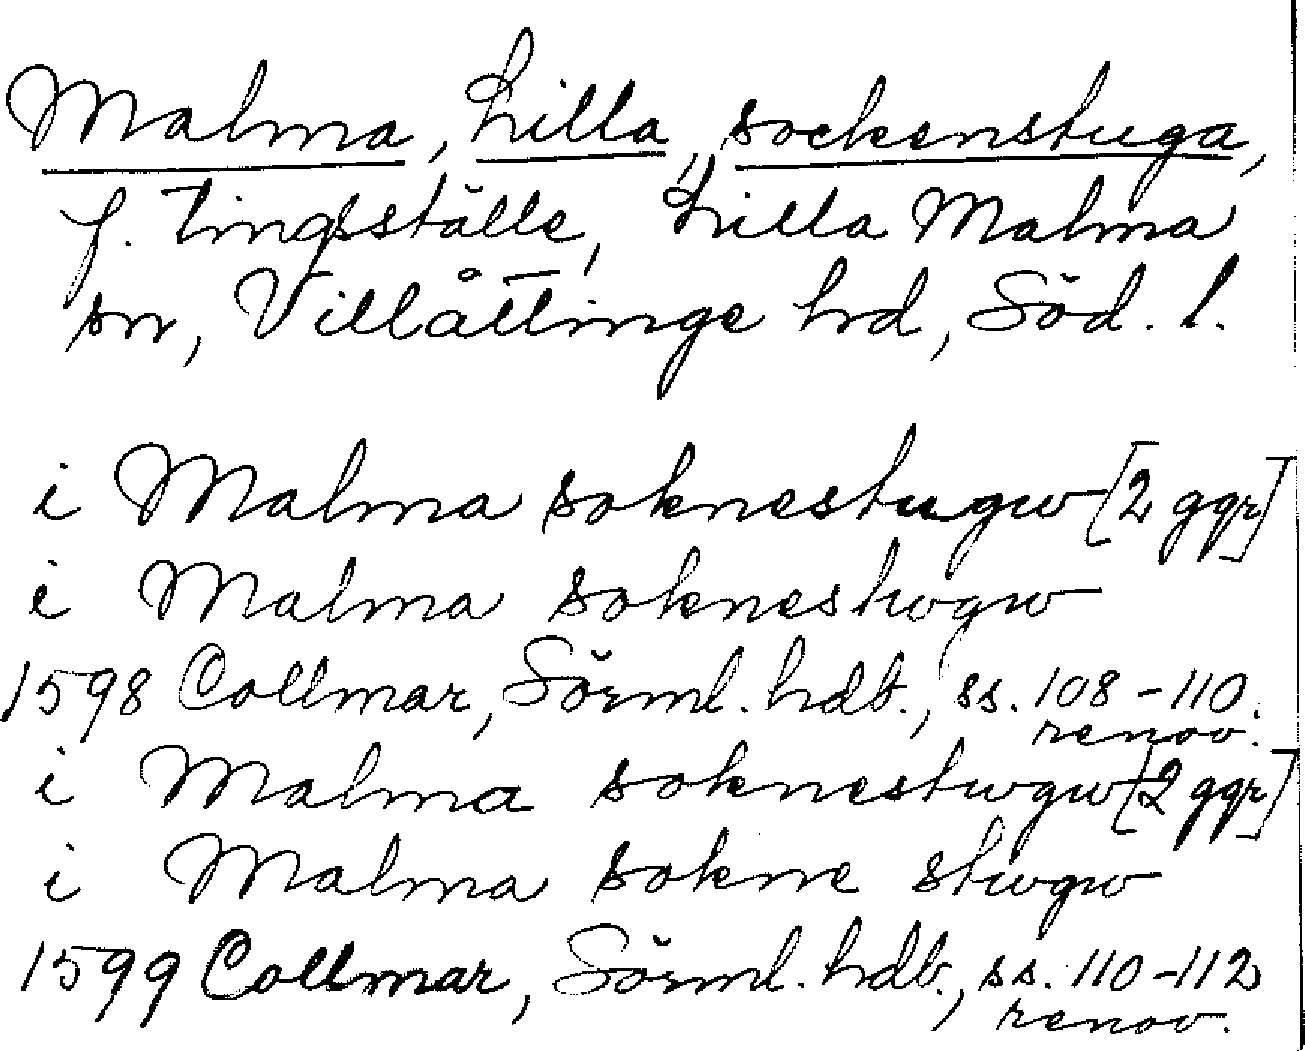 Malma, Lilla, sockenstuga,
f. tingsställe, Lilla Malma
sn, Villåttinge hd, Söd. l.
i Malma soknestugw [2 ggr]
i Malma soknestwgw
1598 Collmar, Sörml. hdb., ss. 108-110.
renov.
i Malma soknestwgw [2 ggr]
i Malma sokne stwgw
1599 Collmar, Sörml. hdb., ss. 110-112
renov.